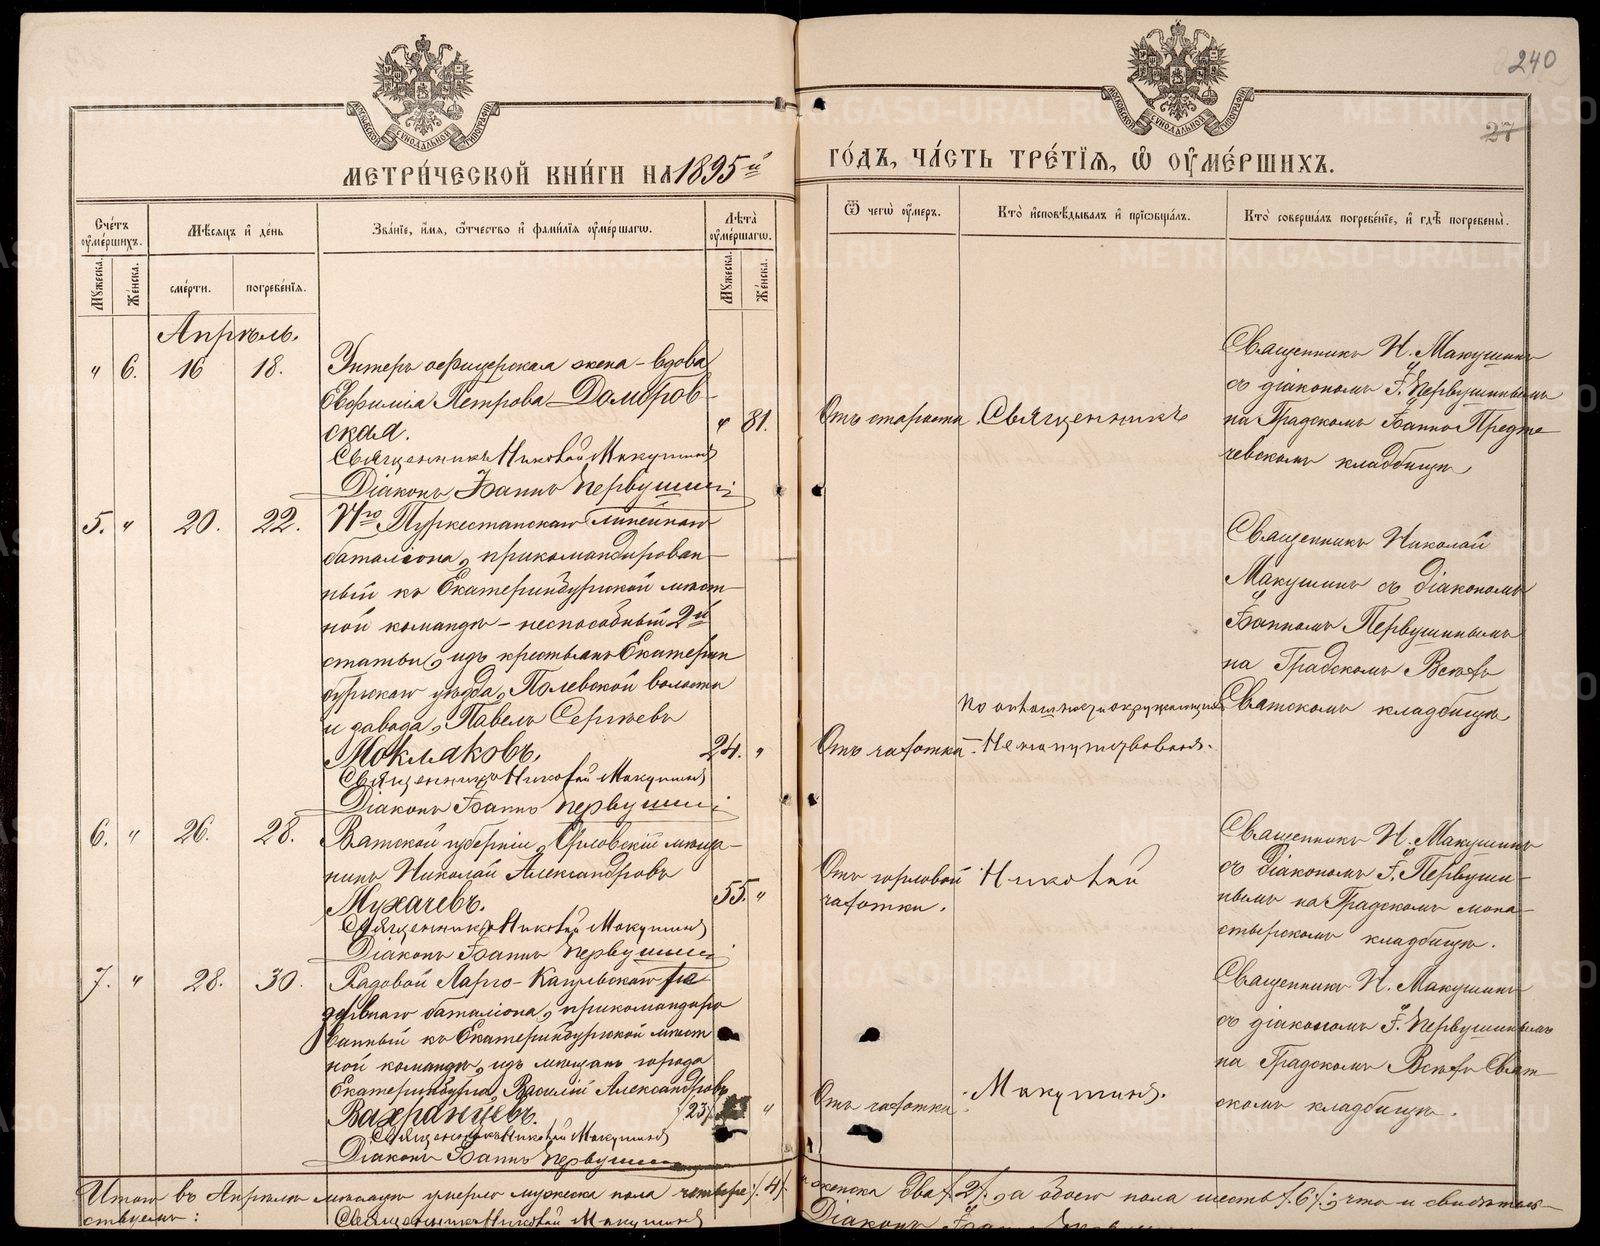 240
27
МОСКОВСКОЙ СУНОДАЛЬНОЙ ТИПОГРАФІИ
МОСКОВСКОЙ СУНОДАЛЬНОЙ ТИПОГРАФІИ
МЕТРИ́ЧЕСКОЙ КНИ́ГИ НА 1895й
ГО́ДЪ, ЧА́СТЬ ТРЕ́ТІѦ, Ѡ҆ ОУ҆МЕ́РШИХЪ.
Сче́тъ оу҆ме́ршихъ.
Мѣ́сяцъ и҆ де́нь
Зва́ніе, и҆́мя, ѻ҆́тчество и҆ фами́лія оу҆ме́ршагѡ.
Лѣ́та оу҆ме́ршагѡ.
Ѿ чегѡ̀ оу҆́меръ.
Кто̀ и҆сповѣ́дывалъ и҆ пріѡбща́лъ.
Кто̀ соверша́лъ погребе́ніе, и҆ гдѣ̀ погребены̀.
Му́жеска.
Же́нска.
сме́рти.
погребе́нія.
Му́жеска.
Же́нска.
Апрѣль.
„ 6. 16 18. Унтеръ офицерская жена-вдова
Евфимія Петрова Домбров-
ская. „ 81.
Священникъ Николай Макушинъ
Діаконъ Іоаннъ Первушин
Отъ старости. Священникъ
Священникъ Н. Макушинъ
съ діакономъ І. Первушинымъ
на Градскомъ Іоанно Предте-
чевскомъ кладбищѣ
5. „ 20. 22. Туркестанскаго линейнаго
баталіона, прикомандирован-
ный къ Екатеринбургской мѣст-
ной командѣ - неспособный 2й
статьи, изъ крестьянъ Екатерин
бургскаго уѣзда, Полевской волости
и завода, Павелъ Сергѣевъ
Моклаковъ. 24. „
Священникъ Николай Макушинъ
Діаконъ Іоаннъ Первушин
Отъ чахотки
Священникъ Николай
Макушинъ съ діакономъ
Іоанномъ Первушинымъ
на Градскомъ Всѣхъ
Святскомъ кладбищѣ
6. „ 26. 28. Вятской губерніи, Орловскій мѣща-
нинъ Николай Александровъ
Мухачевъ. 55. „
Священникъ Николай Макушинъ
Діаконъ Іоаннъ Первушин
Отъ горловой
чахотки.
Николай
Священникъ Н. Макушинъ
съ діакономъ І. Первуши-
нымъ на Градскомъ мона-
стырскомъ кладбищѣ.
7. „ 28. 30. Рядовой Ларго-Кагульскаго
баталіона, прикомандиро
ванный къ Екатеринбургской мѣст
ной командѣ, изъ мѣщанъ города
Екатеринбурга, Василій Александровъ
Вахранцевъ. /23/ „
Священникъ Николай Макушинъ
Діаконъ Іоаннъ Первушин
Отъ чахотки
Макушинъ.
Священникъ Н. Макушинъ
съ діакономъ І. Первушинымъ
на Градскомъ Всѣхъ Свят-
скомъ кладбищѣ.
Итого въ Апрѣлѣ мѣсяцѣ умерло мужеска пола четыре /4/
женска два /2/, а обоего пола шесть /6/, что и свидѣтель-
ствуемъ:
Священникъ Николай Макушинъ
Діаконъ Іоаннъ
METRIKI.GASO-URAL.RU